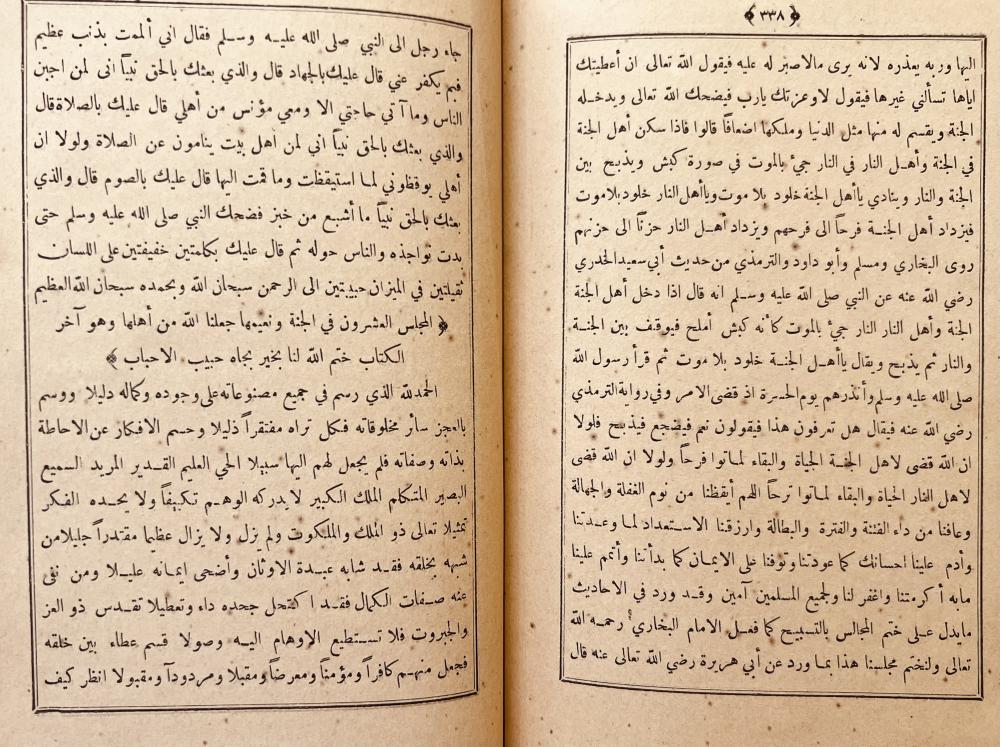 ﴿ ٣٣٨ ﴾
اليها وربه يعذره لانه يرى مالاصبر له عليه فيقول الله تعالى ان أعطيتك
اياها تسألني غيرها فيقول لاوعزتك يارب فيضحك الله تعالى ويدخله
الجنة ويقسم له منها مثل الدنيا وملكها اضعافاً قالوا فاذا سكن أهل الجنة
في الجنة وأهل النار في النار جئ بالموت في صورة كبش ويذبح بين
الجنة والنار وينادي ياأهل الجنة خلود بلا موت وياأهل النار خلود بلاموت
فيزداد أهل الجنة فرحاً الى فرحهم ويزداد أهل النار حزناً الى حزنهم
روى البخاري ومسلم وأبو داود والترمذي من حديث أبي سعيد الخدري
رضي الله عنه عن النبي صلى الله عليه وسلم انه قال اذا دخل أهل الجنة
الجنة وأهل النار النار جئ بالموت كأنه كبش أملح فيوقف بين الجنة
والنار ثم يذبح ويقال ياأهل الجنة خلود بلا موت ثم قرأ رسول الله
صلى الله عليه وسلم وأنذرهم يوم الحسرة اذ قضى الامر وفي رواية الترمذي
رضي الله عنه فيقال هل تعرفون هذا فيقولون نعم فيضجع فيذبح فلولا
ان الله قضى لاهل الجنة الحياة والبقاء لماتوا فرحاً ولولا ان الله قضى
لاهل النار الحياة والبقاء لماتوا ترحاً اللهم أيقظنا من نوم الغفلة والجهالة
وعافنا من داء الفتنة والفترة والبطالة وارزقنا الاستعداد لما وعدتنا
وأدم علينا احسانك كما عودتنا وتوفنا على الايمان كما بدأتنا وأتمم علينا
مابه أكرمتنا واغفر لنا ولجميع المسلمين آمين وقد ورد في الاحاديث
مايدل على ختم المجالس بالتسبيح كما فعل الامام البخاري رحمه الله
تعالى ولنختم مجلسنا هذا بما ورد عن أبي هريرة رضي الله تعالى عنه قال
جاء رجل الى النبي صلى الله عليه وسلم فقال اني ألممت بذنب عظيم
فبم يكفر عني قال عليك بالجهاد قال والذي بعثك بالحق نبياً انى لمن اجبن
الناس وما آتي حاجتي الا ومعي مؤنس من أهلي قال عليك بالصلاة قال
والذي بعثك بالحق نبياً اني لمن أهل بيت ينامون عن الصلاة ولولا ان
أهلي يوقظوني لما استيقظت وما قمت اليها قال عليك بالصوم قال والذي
بعثك بالحق نبياً ما أشبع من خبز فضحك النبي صلى الله عليه وسلم حتى
بدت نواجذه والناس حوله ثم قال عليك بكلمتين خفيفتين على اللسان
ثقيلتين في الميزان حبيبتين الى الرحمن سبحان الله وبحمده سبحان الله العظيم
﴿ المجلس العشرون في الجنة ونعيمها جعلنا الله من أهلها وهو آخر
الكتاب ختم الله لنا بخير بجاه حبيب الاحباب ﴾
الحمدلله الذي رسم في جميع مصنوعاته على وجوده وكماله دليلا ووسم
بالعجز سائر مخلوقاته فكل تراه مفتقراً ذليلا وحسم الافكار عن الاحاطة
بذاته وصفاته فلم يجعل لهم اليها سبيلا الحي العليم القدير المريد السميع
البصير المتكلم الملك الكبير لايدركه الوهم تكييفاً ولا يحده الفكر
تمثيلا تعالى ذو الملك والملكوت ولم يزل ولا يزال عظيما مقتدراً جليلا من
شبهه بخلقه فقد شابه عبدة الاوثان وأضحى ايمانه عليلا ومن نفى
عنه صفات الكمال فقد اكتحل جحده داء وتعطيلا تقدس ذو العز
والجبروت فلا تستطيع الاوهام اليه وصولا قسم عطاء بين خلقه
فجعل منهم كافراً ومؤمناً ومعرضاً ومقبلا ومردوداً ومقبولا انظر كيف